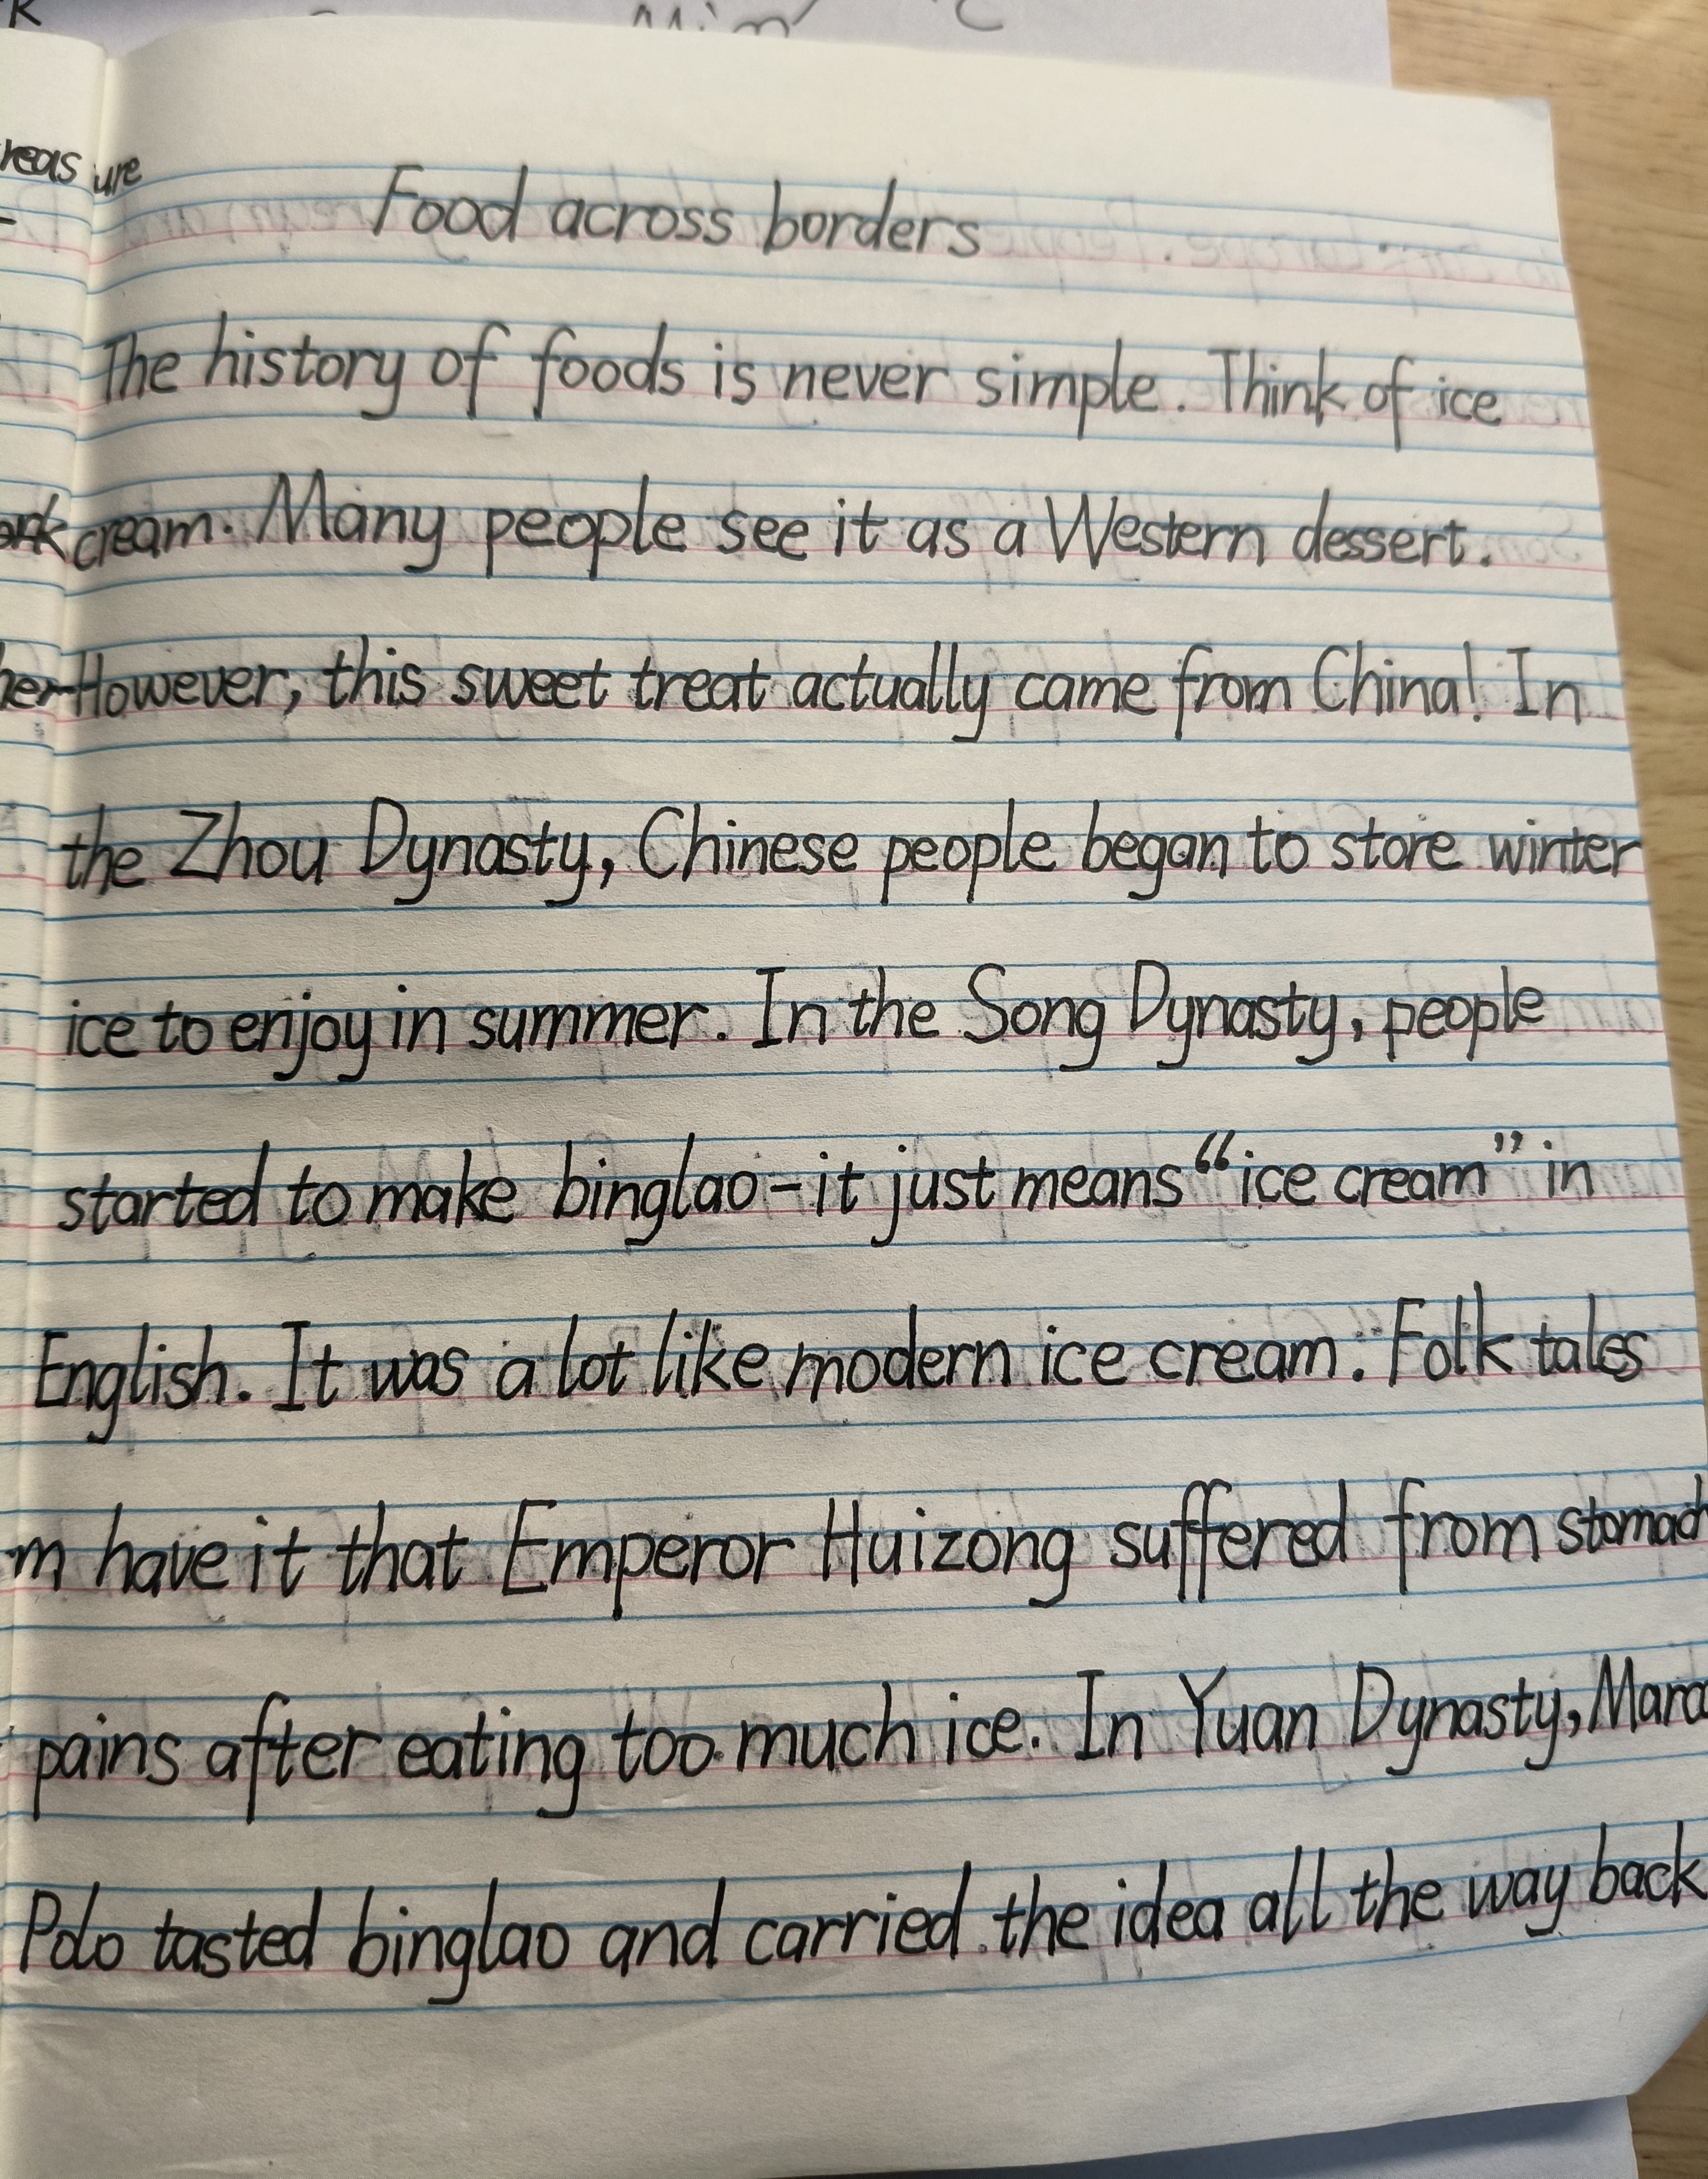 Food across borders
The history of foods is never simple. Think of ice
cream. Many people see it as a Western dessert.
However, this sweet treat actually came from China! In
the Zhou Dynasty, Chinese people began to store winter
ice to enjoy in summer. In the Song Dynasty, people
started to make binglao-it just means “ice cream” in
English. It was a lot like modern ice cream. Folk tales
have it that Emperor Huizong suffered from stomach
pains after eating too much ice. In Yuan Dynasty, Marco
Polo tasted binglao and carried the idea all the way back